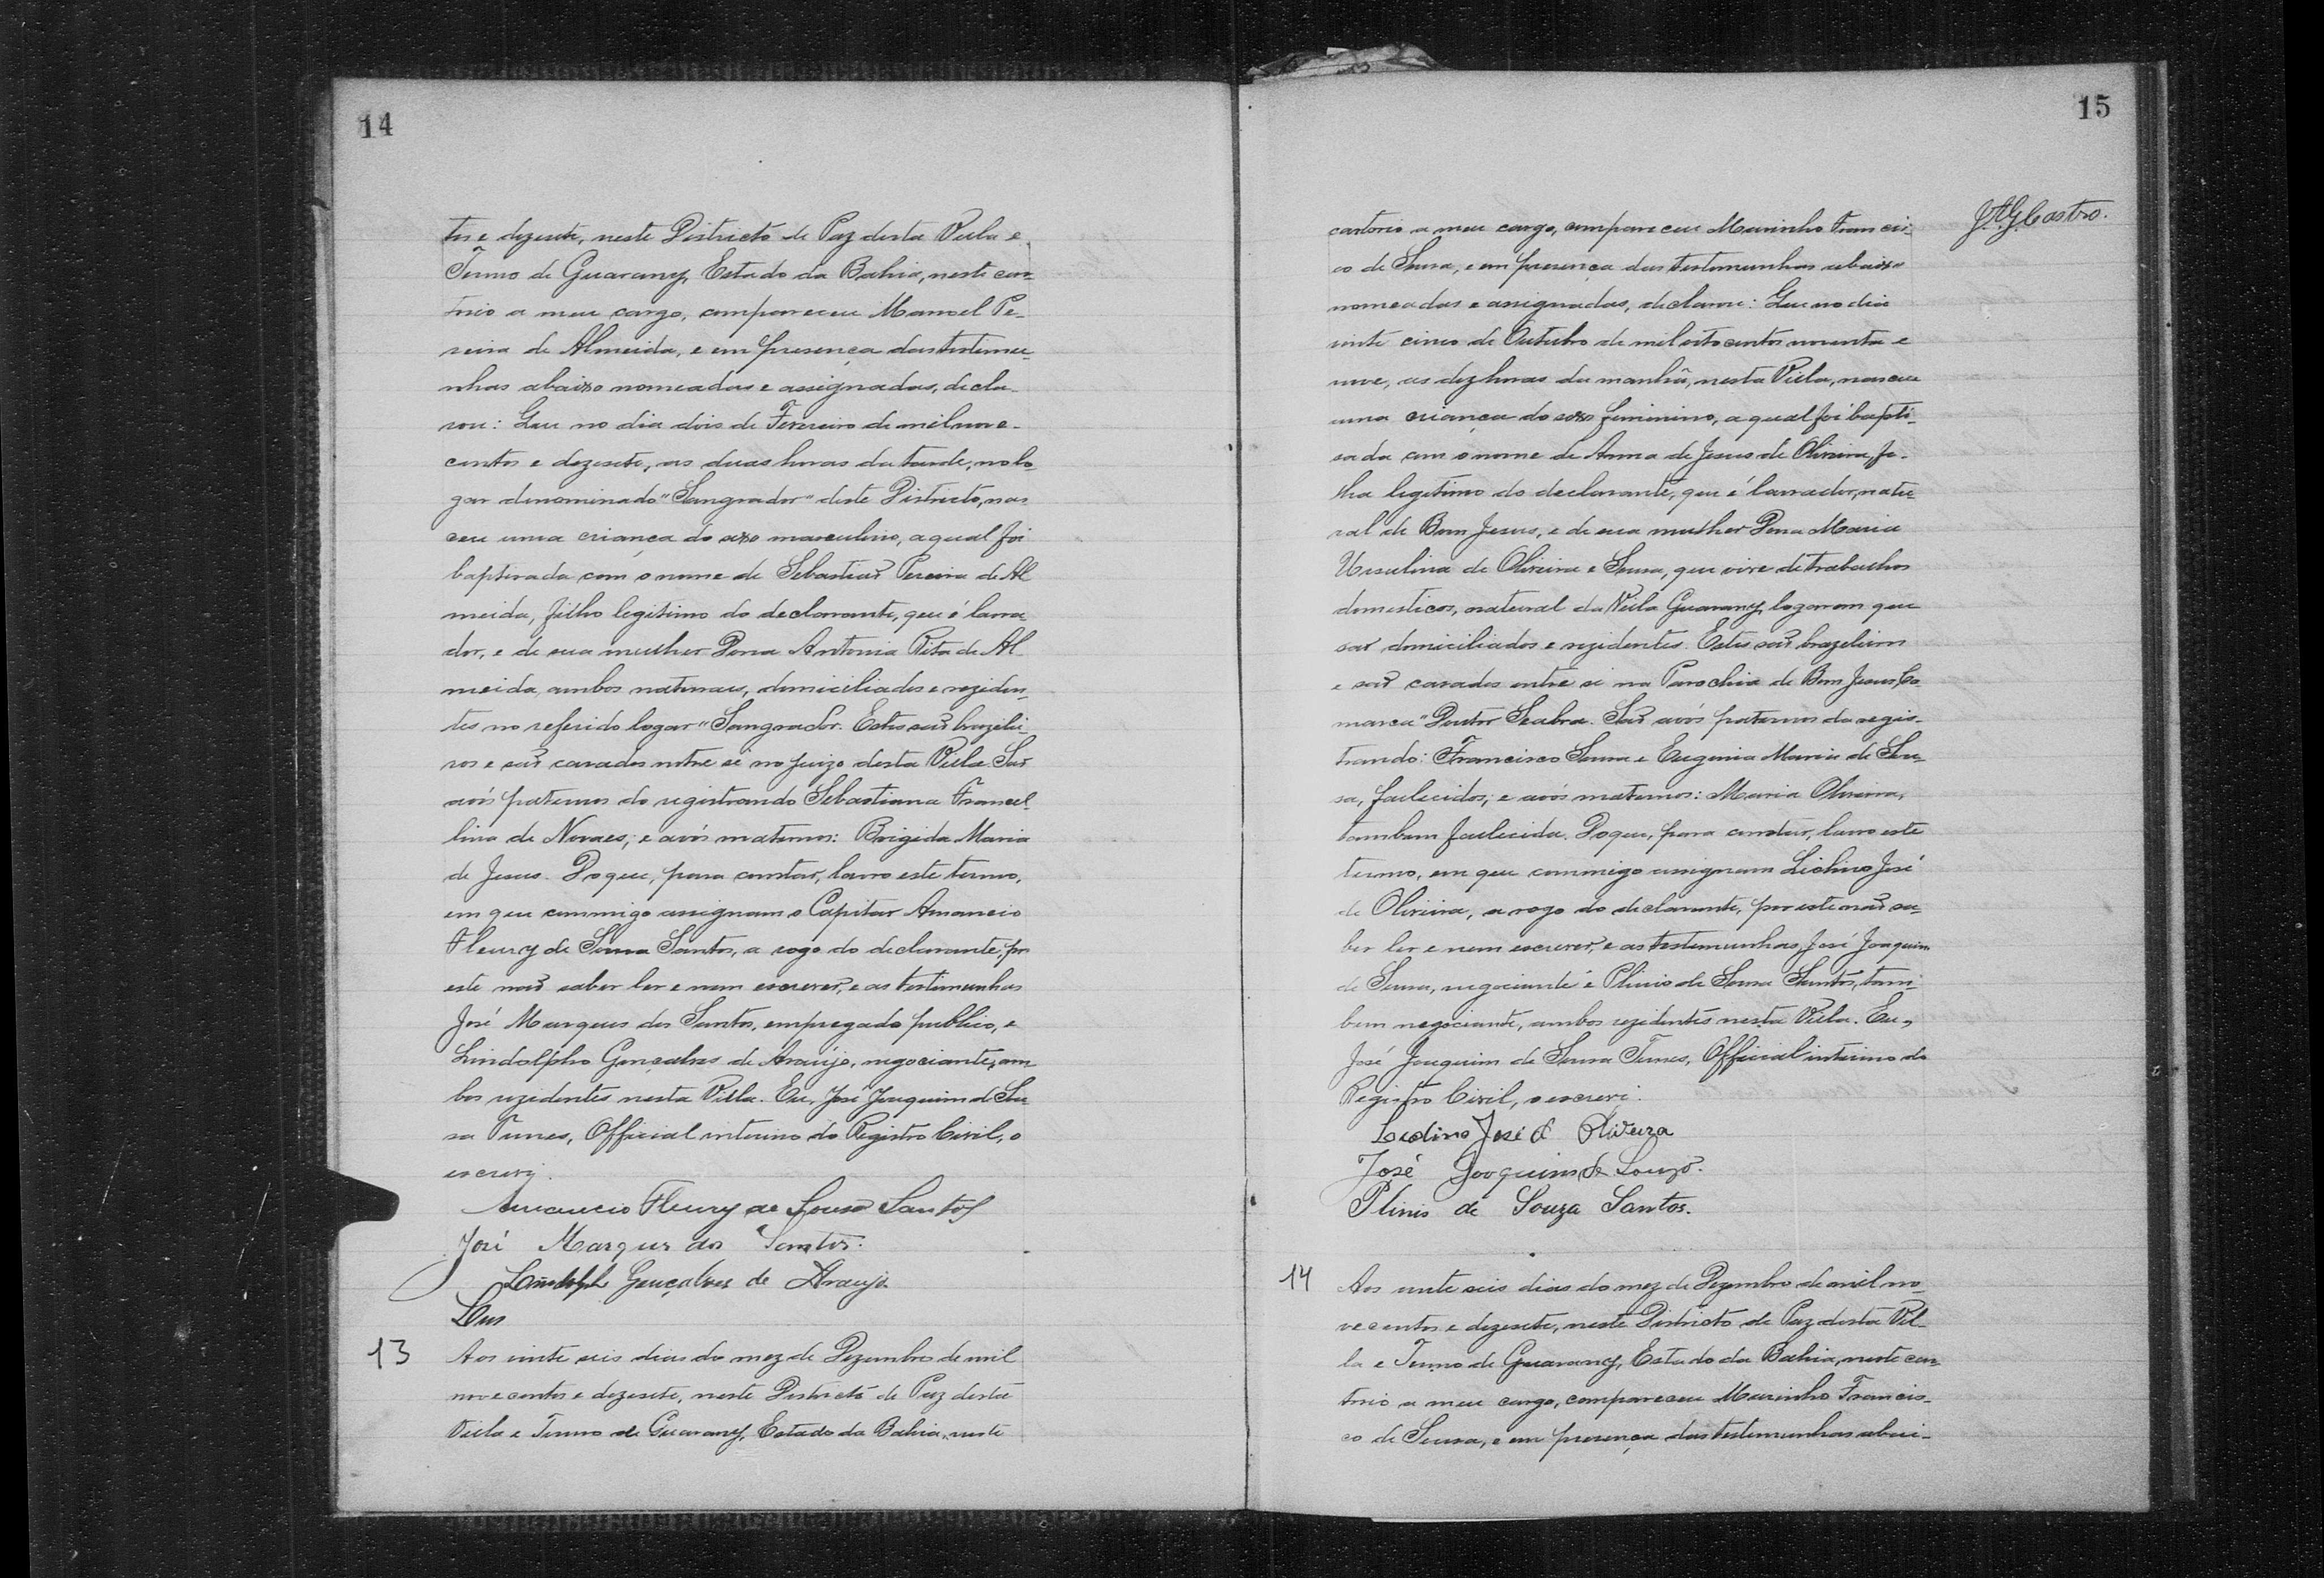 14
tos e dezesete, neste Districto de Paz desta Villa e
Termo de Guarany, Estado da Bahia, neste car-
torio a meu cargo, compareceu Manoel Pe-
reira de Almeida, e em presença das testemu-
nhas abaixo nomeadas e assignadas, decla-
rou: Que no dia dois de Fevereiro de mil nove-
centos e dezesete, as duas horas da tarde, no lo-
gar denominado "Sangrador" deste Districto, nas-
ceu uma criança do sexo masculino, a qual foi
baptisada com o nome de Sebastião Pereira de Al
meida, filho legitimo do declarante, que é lavra
dor, e de sua mulher Dona Antonia Rita de Al
meida, ambos naturaes, domiciliados e reziden-
tes no referido logar "Sangrador. Estes são brazilei-
ros e são casados entre si no juizo desta Villa. São
avós paternos do registrando Sebastiana Francel-
lina de Novaes; e avós maternos: Brigida Maria
de Jesus. Do que, para constar, lavro este termo,
em que commigo assignam o Capitão Amancio
Fleury de Sousa Santos, a rogo do declarante, por
este não saber ler e nem escrever, e as testemunhas
José Marques dos Santos, empregado publico, e
Lindolpho Gonçalves de Araújo, negociante, am-
bos rezidentes nesta Villa. Eu, José Joaquim de Sou-
sa Tunes, Official interino do Registro Civil, o
escrevi.
Amancio Fleury de Souza Santos
José Marques dos Santos.
Lindolpho Gonçalves de Araujo
13 Aos vinte seis dias do mez de Dezembro de mil
novecentos e dezesete, neste Districto de Paz desta
Villa e Termo de Guarany, Estado da Bahia, neste
15
J. A. G. Castro.
cartorio a meu cargo, compareceu Marinho Francis-
co de Sousa, e em presença das testemunhas abaixo
nomeadas e assignadas, declarou: Que no dia
vinte cinco de Outubro de mil oitocentos noventa e
nove, as dez horas da manhã, nesta Villa, nasceu
uma criança do sexo feminino, a qual foi bapti-
sada com o nome de Anna de Jesus de Oliveira, fi-
lha legitimo do declarante, que é lavrador, natu-
ral de Bom Jesus, e de sua mulher Dona Maria
Ursulina de Oliveira e Sousa, que vive de trabalhos
domesticos, natural da Villa Guarany, logar em que
são domiciliados e rezidentes. Estes são brazileiros
e são casados entre si na Parochia de Bom Jesus, Co-
marca "Doutor Seabra. São avós paternos da regis-
trando: Francisco Sousa e Eugenia Maria de Sou-
sa, fallecidos; e avós maternos: Maria Oliveira,
tambem fallecida. Do que, para constar, lavro este
termo, em que commigo assignam Lidino José
de Oliveira, a rogo do declarante, por este não sa-
ber ler e nem escrever, e as testemunhas, José Joaquim
de Sousa, negociante e Plinio de Sousa Santos, tam-
bem negociante, ambos rezidentes nesta Villa. Eu,
José Joaquim de Sousa Tunes, Official interino do
Registro Civil, o escrevi.
José de Oliveira
José Joaquim de Souza.
Plinio de Souza Santos.
14 Aos vinte seis dias do mez de Dezembro de mil no-
vecentos e dezesete, neste Districto de Paz desta Vil-
la e Termo de Guarany, Estado da Bahia, neste car-
torio a meu cargo, compareceu Marinho Francis-
co de Sousa, e em presença das testemunhas abai-